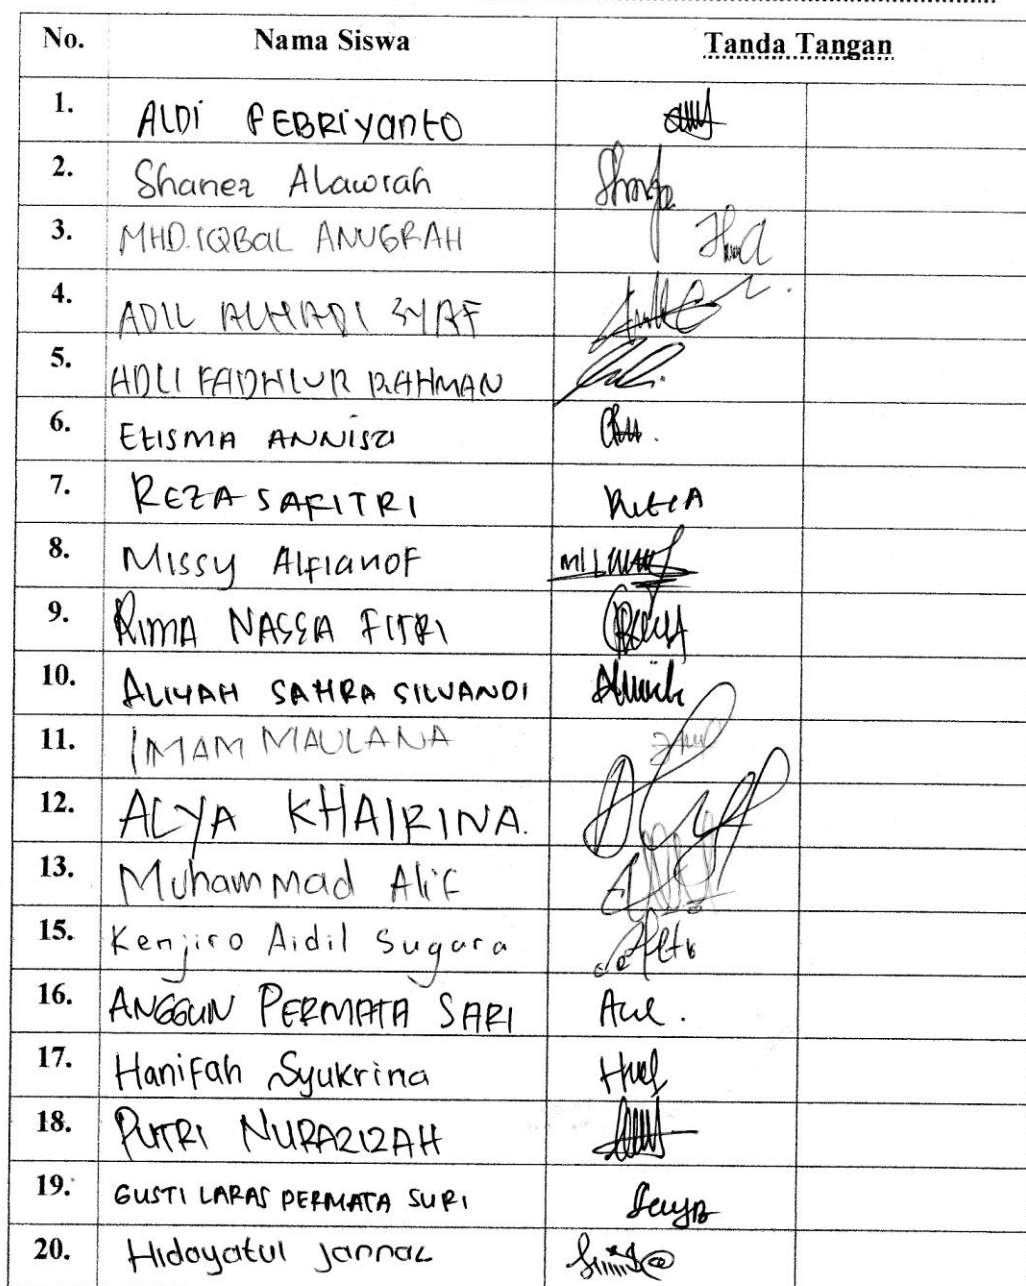 No. Nama Siswa Tanda Tangan
1. ALDi FEBRiyanto
2. Shanez Alawiah
3. MHD.IQBAL ANUGRAH
4. ADIL ALHADI SYAF
5. ADLI FADHLUR RAHMAN
6. Elisma ANNisa
7. REZA SAFITRI
8. Missy Alfianof
9. RIMA NASSA FITRI
10. ALIYAH SAHRA SILVANDI
11. IMAM MAULANA
12. ALYA KHAIRINA.
13. Muhammad Alif
15. Kenjiro Aidil Sugara
16. ANGGUN PERMATA SARI
17. Hanifah Syukrina
18. PUTRI NURAZIZAH
19. GUSTI LARAS PERMATA SURI
20. Hidayatul Jannac